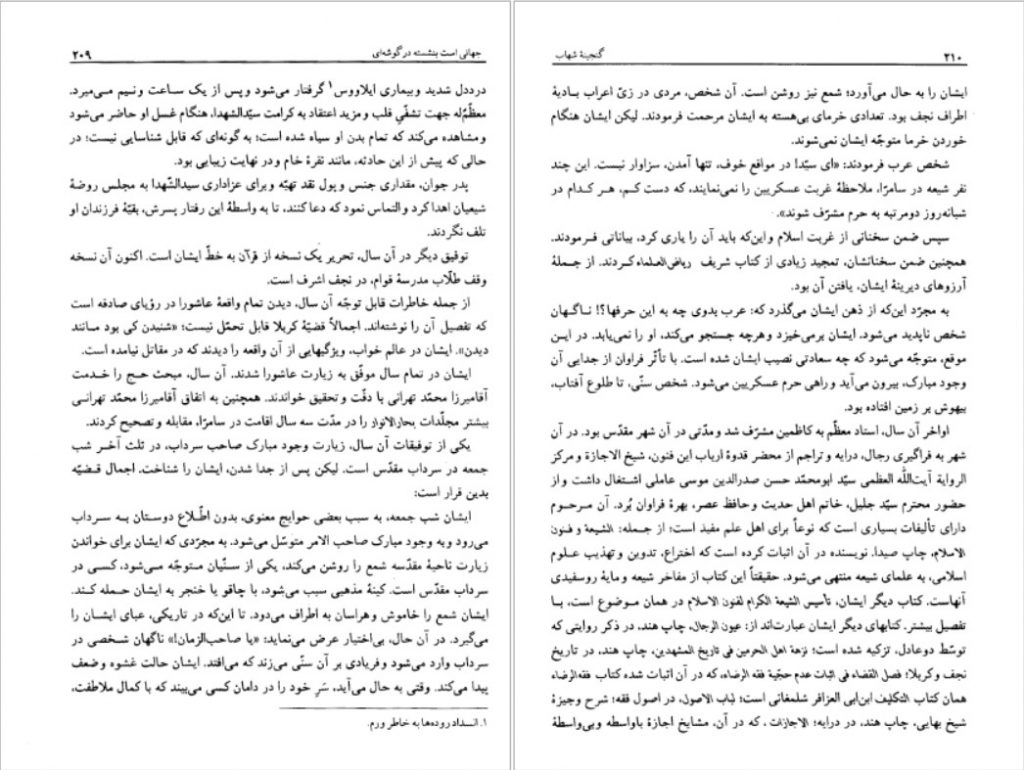 جهانی است بنشسته در گوشه‌ای ۲۰۹
درددل شدید و بیماری ایلاووس۱ گرفتار می‌شود و پس از یک ساعت و نیم می‌میرد.
معظّم‌له جهت تشفّی قلب و مزید اعتقاد به کرامت سیّدالشهدا، هنگام غسل او حاضر می‌شود
و مشاهده می‌کند که تمام بدن او سیاه شده است؛ به گونه‌ای که قابل شناسایی نیست؛ در
حالی که پیش از این حادثه، مانند نقرهٔ خام و در نهایت زیبایی بود.
پدر جوان، مقداری جنس و پول نقد تهیّه و برای عزاداری سیدالشّهدا به مجلس روضهٔ
شیعیان اهدا کرد و التماس نمود که دعا کنند، تا به واسطهٔ این رفتار پسرش، بقیّهٔ فرزندان او
تلف نگردند.
توفیق دیگر در آن سال، تحریر یک نسخه از قرآن به خطّ ایشان است. اکنون آن نسخه
وقف طلّاب مدرسهٔ قوام، در نجف اشرف است.
از جمله خاطرات قابل توجّه آن سال، دیدن تمام واقعهٔ عاشورا در رؤیای صادقه است
که تفصیل آن را نوشته‌اند. اجمالاً قضیّهٔ کربلا قابل تحمّل نیست؛ «شنیدن کی بود مانند
دیدن». ایشان در عالم خواب، ویژگیهایی از آن واقعه را دیدند که در مقاتل نیامده است.
ایشان در تمام سال موفّق به زیارت عاشورا شدند. آن سال، مبحث حج را خدمت
آقامیرزا محمّد تهرانی با دقّت و تحقیق خواندند. همچنین به اتفاق آقامیرزا محمّد تهرانی
بیشتر مجلّدات بحارالانوار را در مدّت سه سال اقامت در سامرّا، مقابله و تصحیح کردند.
یکی از توفیقات آن سال، زیارت وجود مبارک صاحب سرداب، در ثلث آخر شب
جمعه در سرداب مقدّس است. لیکن پس از جدا شدن، ایشان را شناخت. اجمال قضیّه
بدین قرار است:
ایشان شب جمعه، به سبب بعضی حوایج معنوی، بدون اطّلاع دوستان به سرداب
می‌رود و به وجود مبارک صاحب الامر متوسّل می‌شود. به مجرّدی که ایشان برای خواندن
زیارت ناحیهٔ مقدّسه شمع را روشن می‌کند، یکی از سنّیان متوجّه می‌شود، کسی در
سرداب مقدّس است. کینهٔ مذهبی سبب می‌شود، با چاقو یا خنجر به ایشان حمله کند.
ایشان شمع را خاموش و هراسان به اطراف می‌دود. تا این‌که در تاریکی، عبای ایشان را
می‌گیرد. در آن حال، بی‌اختیار عرض می‌نماید: «یا صاحب‌الزمان!» ناگهان شخصی در
سرداب وارد می‌شود و فریادی بر آن سنّی می‌زند که می‌افتد. ایشان حالت غشوه و ضعف
پیدا می‌کند. وقتی به حال می‌آید، سَرِ خود را در دامان کسی می‌بیند که با کمال ملاطفت،
۱. انسداد روده‌ها به خاطر ورم.
گنجینهٔ شهاب ۲۱۰
ایشان را به حال می‌آورد؛ شمع نیز روشن است. آن شخص، مردی در زیّ اعراب بادیهٔ
اطراف نجف بود. تعدادی خرمای بی‌هسته به ایشان مرحمت فرمودند. لیکن ایشان هنگام
خوردن خرما متوجّه ایشان نمی‌شوند.
شخص عرب فرمودند: «ای سیّد! در مواقع خوف، تنها آمدن، سزاوار نیست. این چند
نفر شیعه در سامرّا، ملاحظهٔ غربت عسکریین را نمی‌نمایند، که دست کم، هر کدام در
شبانه‌روز دومرتبه به حرم مشرّف شوند».
سپس ضمن سخنانی از غربت اسلام و این‌که باید آن را یاری کرد، بیاناتی فرمودند.
همچنین ضمن سخنانشان، تمجید زیادی از کتاب شریف ریاض‌العلماء کردند. از جملهٔ
آرزوهای دیرینهٔ ایشان، یافتن آن بود.
به مجرّد این‌که از ذهن ایشان می‌گذرد که: عرب بدوی چه به این حرفها؟! ناگهان
شخص ناپدید می‌شود. ایشان برمی‌خیزد و هرچه جستجو می‌کند، او را نمی‌یابد. در این
موقع، متوجّه می‌شود که چه سعادتی نصیب ایشان شده است. با تأثّر فراوان از جدایی آن
وجود مبارک، بیرون می‌آید و راهی حرم عسکریین می‌شود. شخص سنّی، تا طلوع آفتاب،
بیهوش بر زمین افتاده بود.
اواخر آن سال، استاد معظّم به کاظمین مشرّف شد و مدّتی در آن شهر مقدّس بود. در آن
شهر به فراگیری رجال، درایه و تراجم از محضر قدوهٔ ارباب این فنون، شیخ الاجازة و مرکز
الروایة آیت‌اللّٰه العظمی سیّد ابومحمّد حسن صدرالدین موسی عاملی اشتغال داشت و از
حضور محترم سیّد جلیل، خاتم اهل حدیث و حافظ عصر، بهرهٔ فراوان بُرد. آن مرحوم
دارای تألیفات بسیاری است که نوعاً برای اهل علم مفید است؛ از جمله: الشیعة و فنون
الاسلام، چاپ صیدا. نویسنده در آن اثبات کرده است که اختراع، تدوین و تهذیب علوم
اسلامی، به علمای شیعه منتهی می‌شود. حقیقتاً این کتاب از مفاخر شیعه و مایهٔ روسفیدی
آنهاست. کتاب دیگر ایشان، تأسیس الشیعة الکرام لفنون الاسلام در همان موضوع است، با
تفصیل بیشتر. کتابهای دیگر ایشان عبارت‌اند از: عیون الرجال، چاپ هند، در ذکر روایتی که
توسّط دوعادل، تزکیه شده است؛ نزهة اهل الحرمین فی تاریخ المشهدین، چاپ هند، در تاریخ
نجف و کربلا؛ فصل القضاء فی اثبات عدم حجّیة فقه الرضاء، که در آن اثبات شده کتاب فقه‌الرضاء
همان کتاب التکلیف ابن‌ابی العزافر شلمغانی است؛ لباب الاصول، در اصول فقه؛ شرح وجیزهٔ
شیخ بهایی، چاپ هند، در درایه؛ الاجازات، که در آن، مشایخ اجازهٔ باواسطه و بی‌واسطهٔ